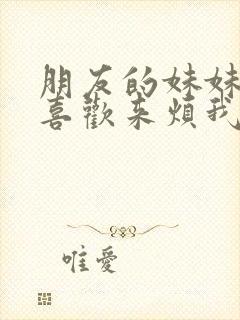 朋友的妹妹
喜歡來煩我
唯愛